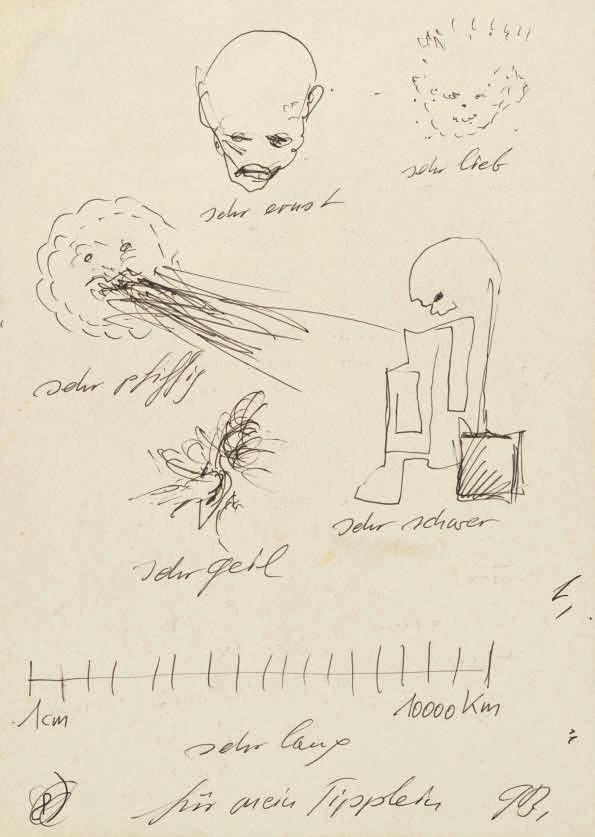 sehr ernst
sehr lieb
sehr pfiffig
sehr schwer
sehr geil
1cm
10000 Km
sehr lang
für mein Tipplein